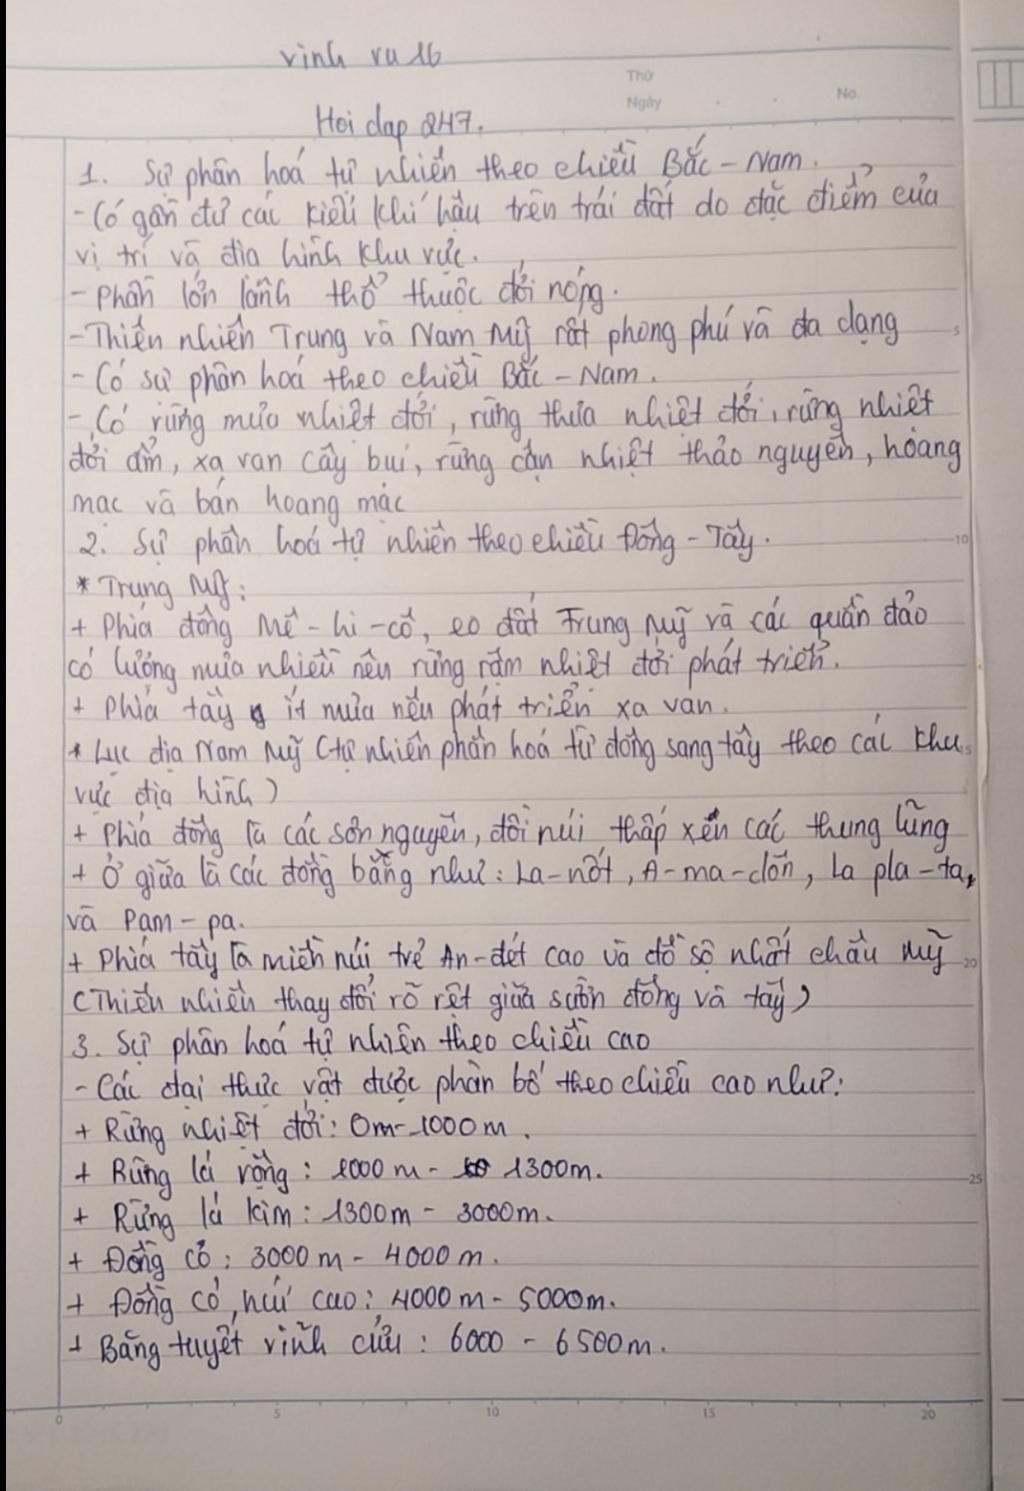 vinh vu 16
Thứ
Ngày
No.
Hoi dap 247.
1. Sự phân hoá tự nhiên theo chiều Bắc - Nam.
- Có gần đủ các kiểu khí hậu trên trái đất do đặc điểm của
vị trí và địa hình khu vực.
- Phần lớn lãnh thổ thuộc đới nóng.
- Thiên nhiên Trung và Nam Mỹ rất phong phú và đa dạng
- Có sự phân hoá theo chiều Bắc - Nam.
- Có rừng mưa nhiệt đới, rừng thưa nhiệt đới, rừng nhiệt
đới ẩm, xa van cây bụi, rừng cận nhiệt thảo nguyên, hoang
mạc và bán hoang mạc
2. Sự phân hoá tự nhiên theo chiều Đông - Tây.
* Trung Mỹ:
+ Phía đông Mê - hi - cô, eo đất Trung Mỹ và các quần đảo
có lượng mưa nhiều nên rừng rậm nhiệt đới phát triển.
+ Phía tây ít mưa nên phát triển xa van.
* Lục địa Nam Mỹ (tự nhiên phân hoá từ đông sang tây theo các khu
vực địa hình)
+ Phía đông là các sơn nguyên, đồi núi thấp xen các thung lũng
+ Ở giữa là các đồng bằng như: La-nốt, A-ma-dôn, La pla-ta,
và Pam - pa.
+ Phía tây là miền núi trẻ An-đét cao và đồ sộ nhất châu Mỹ
(Thiên nhiên thay đổi rõ rệt giữa sườn đông và tây)
3. Sự phân hoá tự nhiên theo chiều cao
- Các đai thực vật được phân bố theo chiều cao như:
+ Rừng nhiệt đới: 0m-1000m.
+ Rừng lá rộng: 1000m - 1300m.
+ Rừng lá kim: 1300m - 3000m.
+ Đồng cỏ: 3000m - 4000m.
+ Đồng cỏ, núi cao: 4000m - 5000m.
+ Băng tuyết vĩnh cửu: 6000 - 6500m.
5
10
20
25
0 5 10 15 20